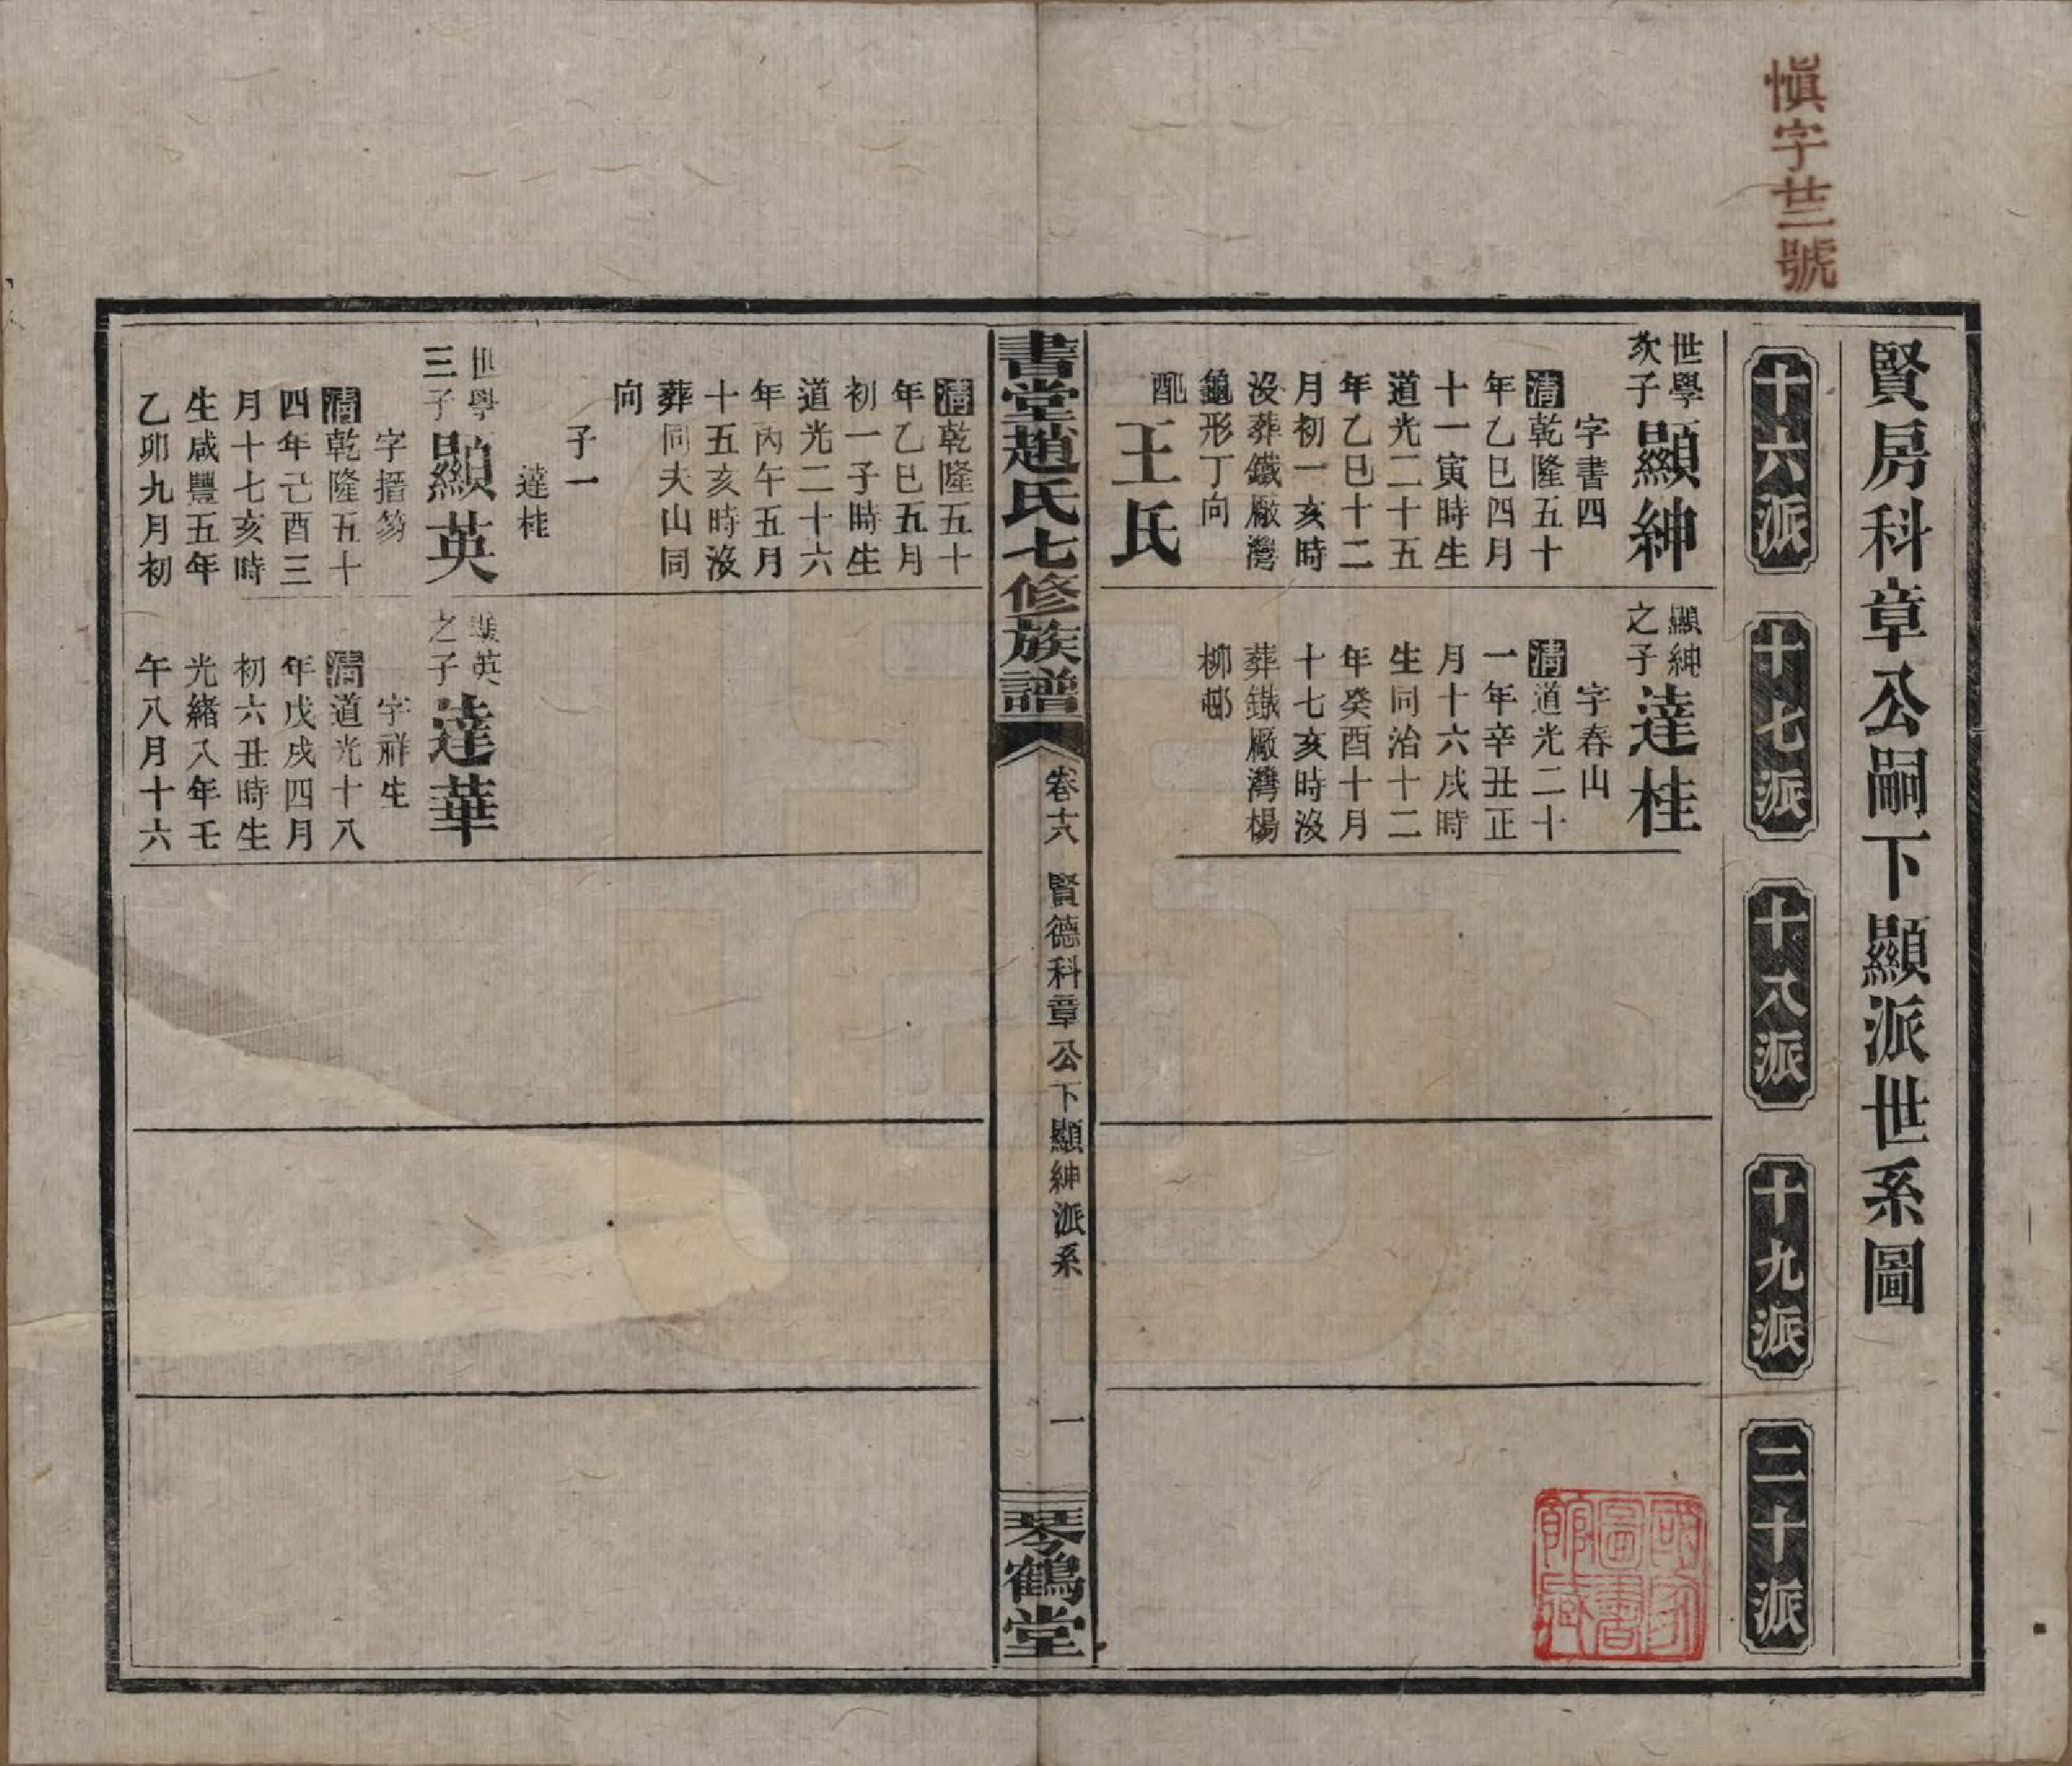 愼字卄三號
賢房科章公嗣下顯派世系圖
十六派
十七派
十八派
十九派
二十派
世學
次子
顯紳
字書四
清乾隆五十
年乙巳四月
十一寅時生
道光二十五
年乙巳十二
月初一亥時
沒葬鐵廠灣
龜形丁向
配
王氏
顯紳
之子
達桂
字春山
清道光二十
一年辛丑正
月十六戌時
生同治十二
年癸酉十月
十七亥時沒
葬鐵廠灣楊
柳邨
書堂趙氏七修族譜
卷十八
賢德科章公下顯紳派系
一
琴鶴堂
清乾隆五十
年乙巳五月
初一子時生
道光二十六
年丙午五月
十五亥時沒
葬同夫山同
向
子一
達桂
世學
三子
顯英
字搢笏
清乾隆五十
四年己酉三
月十七亥時
生咸豐五年
乙卯九月初
顯英
之子
達華
字祥生
清道光十八
年戊戌四月
初六丑時生
光緒八年壬
午八月十六
國家圖書館藏